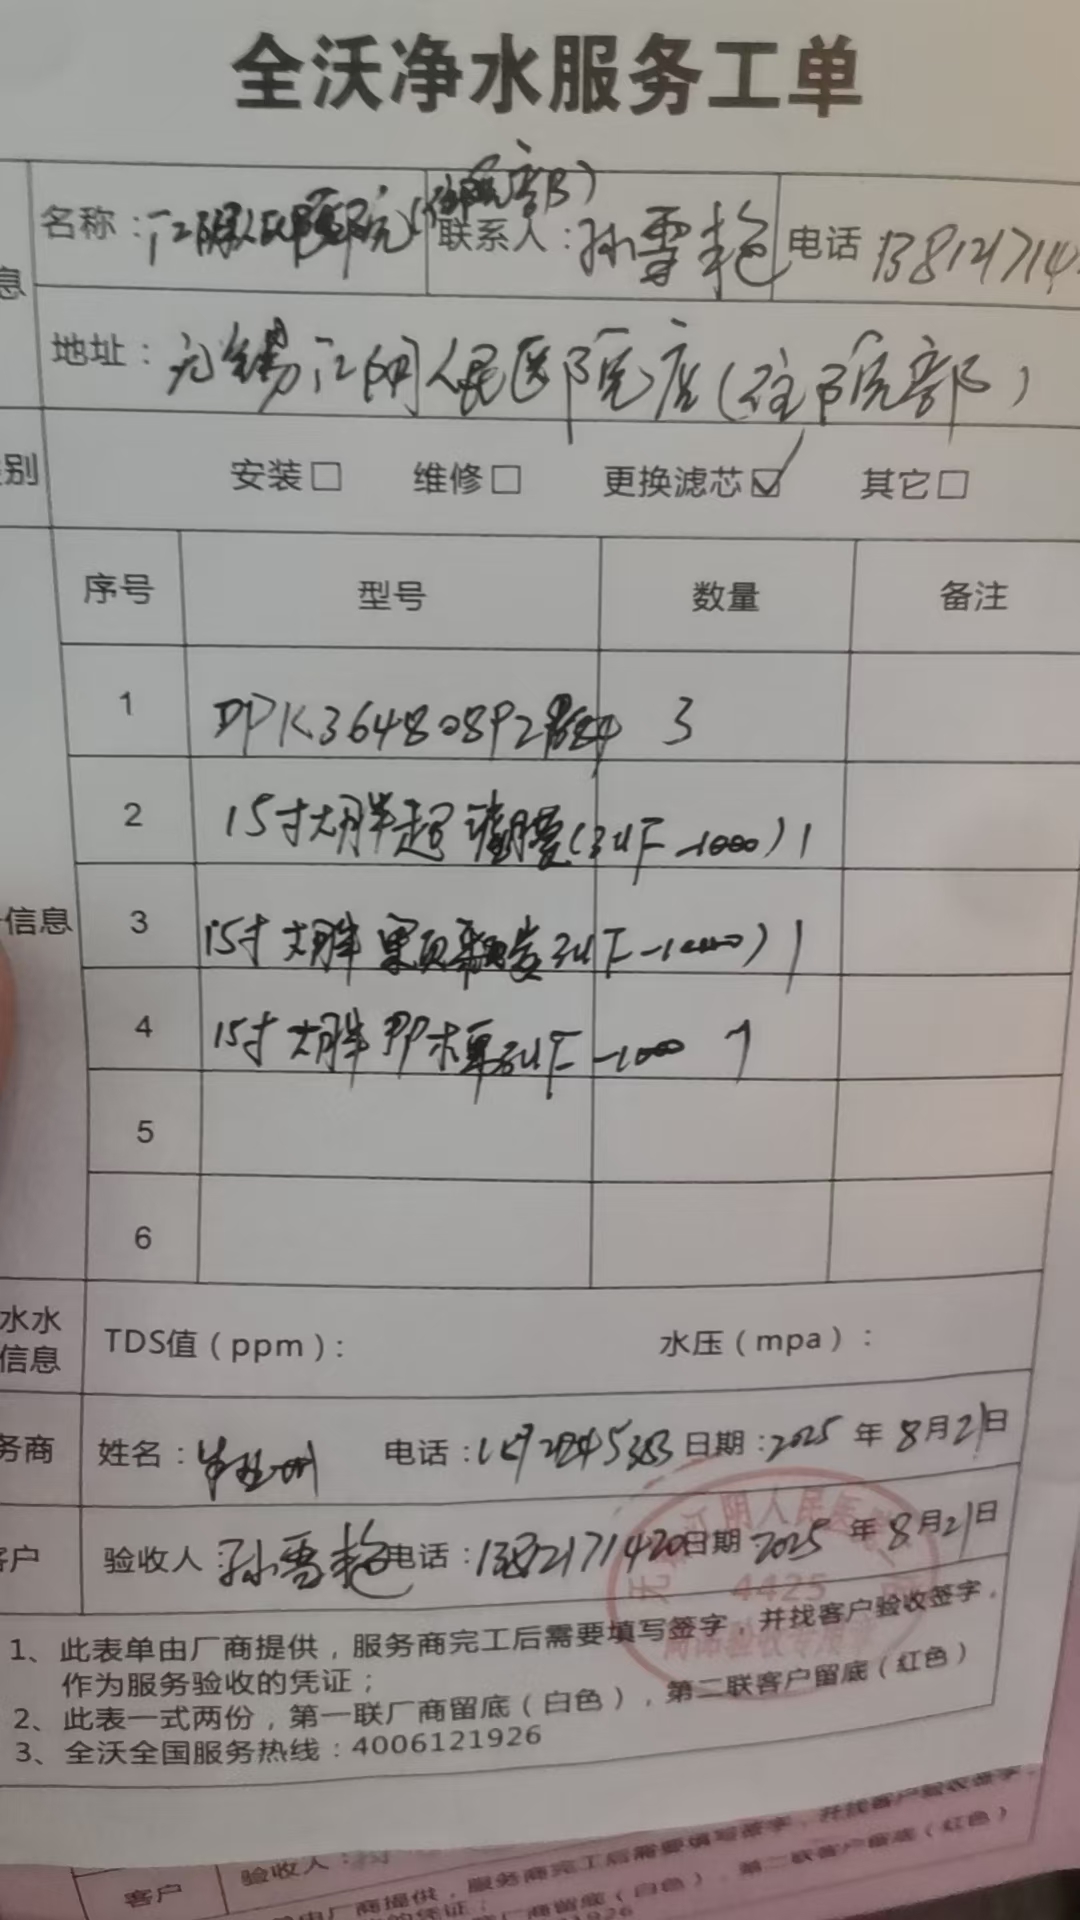 全沃净水服务工单
息
名称：江阴人民医院(住院部)
联系人：孙雪艳
电话 138121714
地址：无锡江阴人民医院店(住院部)
别
安装□ 维修□ 更换滤芯☑ 其它□
序号 型号 数量 备注
1 DPK36480892 3
2 15寸大胖超滤膜(3UF-1000) 1
3 15寸大胖果页颗炭3UF-1000) 1
4 15寸大胖PP棉3UF-1000 1
5
6
信息
水水
信息
TDS值（ppm）： 水压（mpa）：
务商
姓名： 电话： 日期：2025 年 8月21日
客户
验收人 孙雪艳 电话： 日期 2025 年 8月21日
江阴人民医
4425
1、此表单由厂商提供，服务商完工后需要填写签字，并找客户验收签字，
作为服务验收的凭证；
2、此表一式两份，第一联厂商留底（白色），第二联客户留底（红色）
3、全沃全国服务热线：4006121926
客户
验收人：
厂商提供，服务商完工后需要填写签字，并找客户验收签字，
的凭证；
联厂商留底（白色），第二联客户留底（红色）